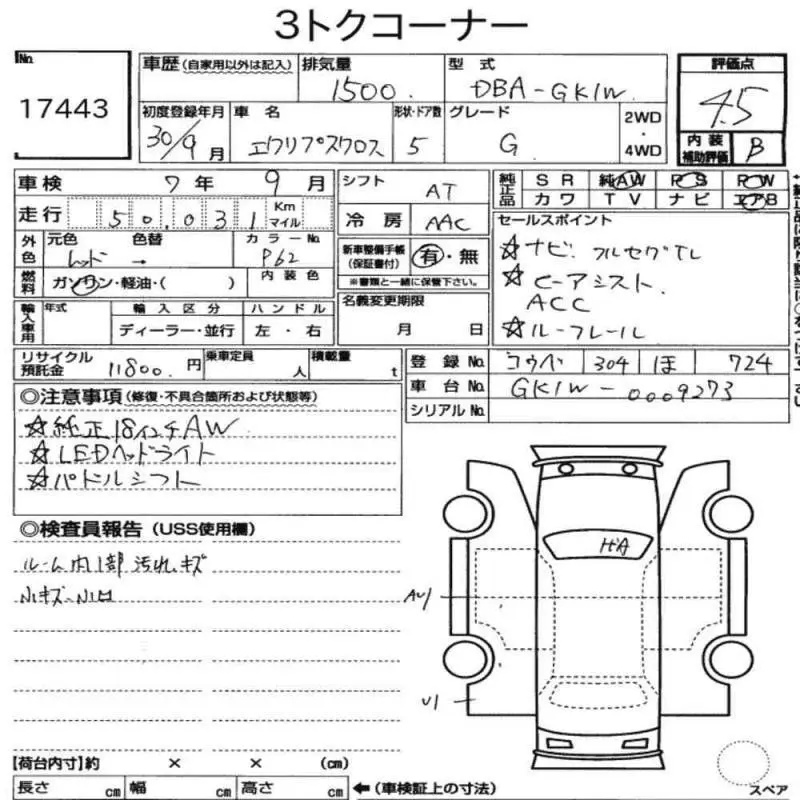 3トクコーナー
No.
17443
車歴 (自家用以外は記入)
排気量
1500.
型 式
DBA-GK1W.
評価点
4.5
初度登録年月
30/9月
車 名
エクリプスクロス
形状・ドア数
5
グレード
G
2WD
・
4WD
内装
補助評価
B
車 検 7 年 9 月
シフト
AT
純正品
SR 純AW PS PW
カワ TV ナビ エアB
走行 50,031 Km マイル
冷 房 AAC
セールスポイント
☆ナビ フルセグTV
☆e-アシスト.
ACC
☆ルーフレール
外色 元色 色替 カラーNo.
レッド → P62
新車整備手帳
(保証書付)
有・無
※書類と一緒に保管下さい。
燃料 ガソリン・軽油・( ) 内装色
輸入車用 年式 輸入区分 ハンドル
ディーラー・並行 左・右
名義変更期限
月 日
リサイクル
預託金 11800. 円
乗車定員 人
積載量 t
登録No. コウベ 304 ほ 724
車台No. GK1W-0009273
シリアルNo.
◎注意事項 (修復・不具合箇所および状態等)
☆純正18インチAW
☆LEDヘッドライト
☆パドルシフト
◎検査員報告 (USS使用欄)
ルーム内1部汚れ、キズ
小キズ〜小凹
AU1
U1
【荷台内寸】約 × × (cm)
長さ cm 幅 cm 高さ cm
←(車検証上の寸法)
スペア